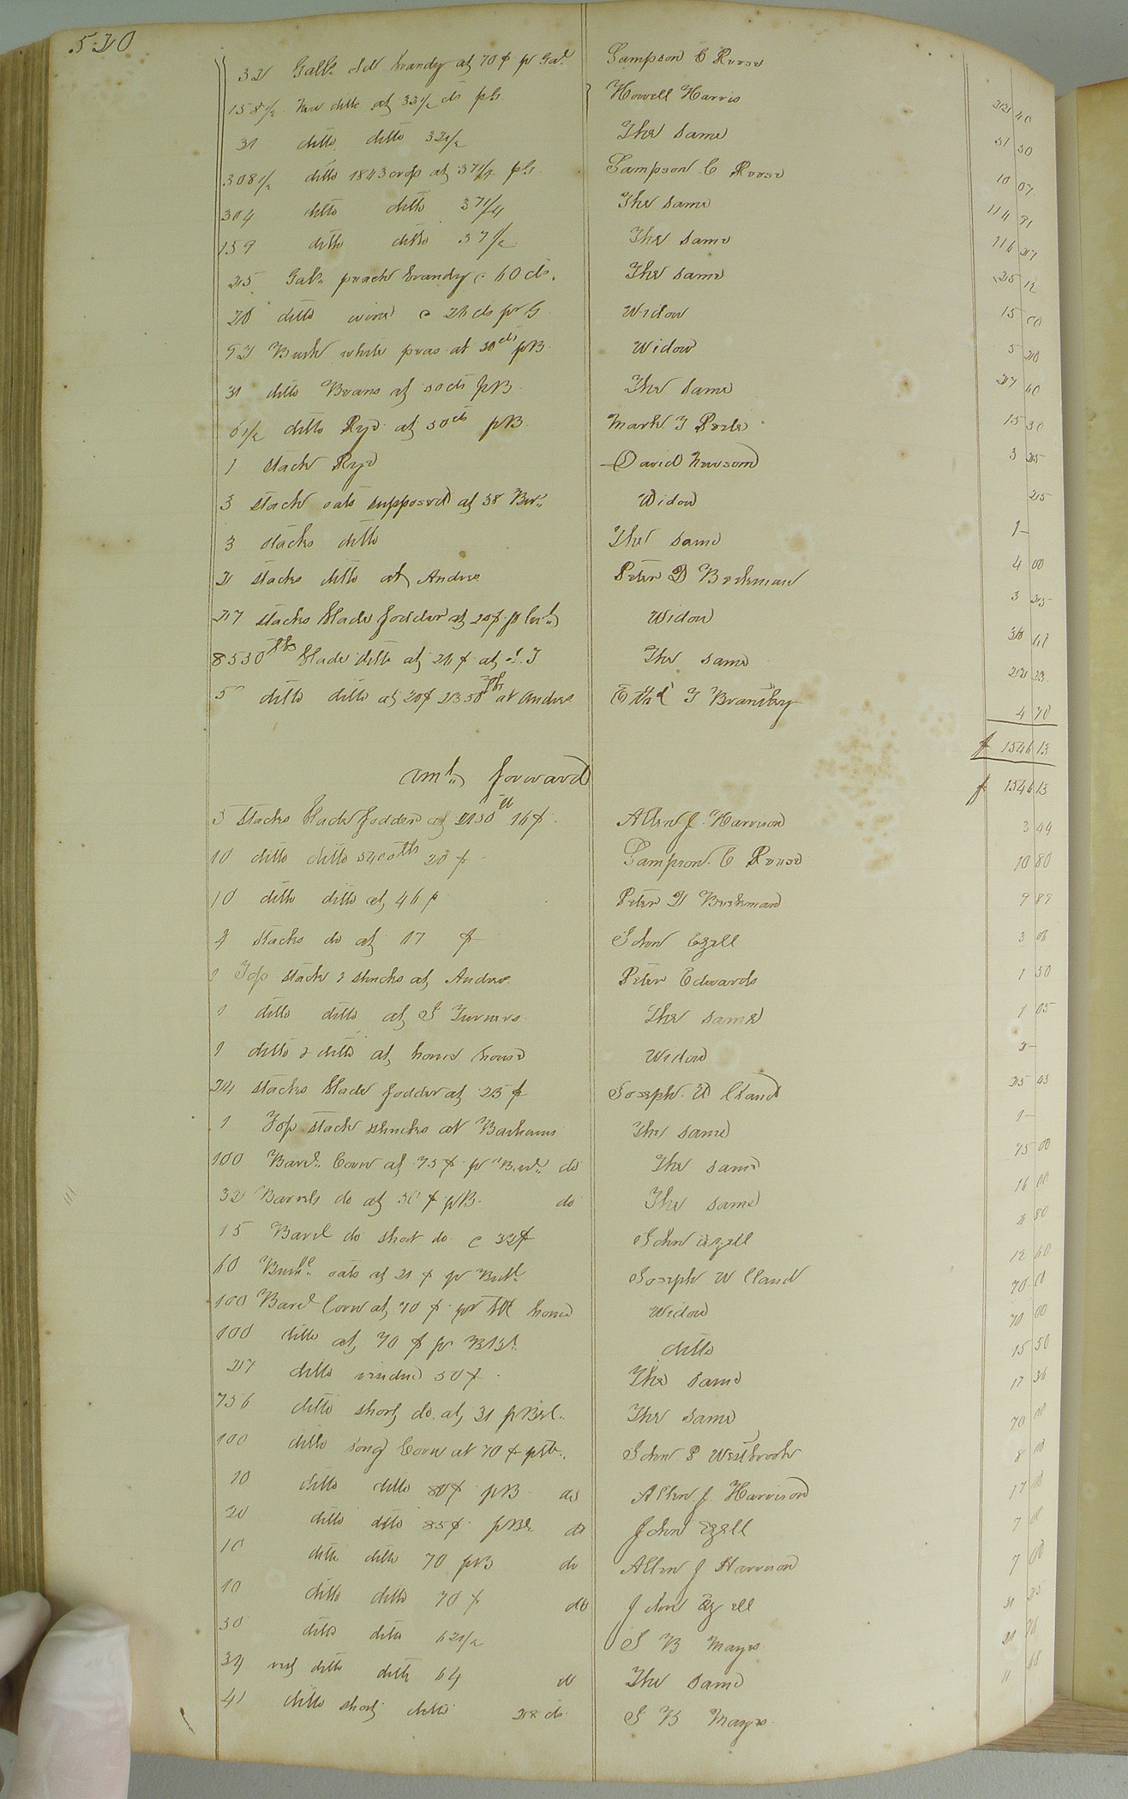 520
32 Galls. old brandy at 70¢ pr Gal. Sampson C Reese
158 1/2 new ditto at 33 1/2 cts pG Howell Harris 40
31 ditto ditto 32 1/2 The same 50
308 1/2 ditto 1843 crop at 37 1/4 pG Sampson C Reese 10 07
304 ditto ditto 37 1/4 The same 114 91
159 ditto ditto 37 1/2 The same 116 27
25 Gals peach brandy @ 60 cts. The same 12
20 ditto wine @ 26 cts pr G Widow 15 00
92 Bush white peas at 30 cts pB Widow 5 20
31 ditto Beans at 50 cts pB The same 27 60
6 1/2 ditto Rye at 50 cts pB Mark T 15 50
1 stack Rye David Newsom 3 25
3 stack oats supposed at 38 Bus. Widow 25
3 stacks ditto The same 1 –
2 stacks ditto at Andres Peter D Beckman 4 00
27 stacks blade fodder at 20¢ p Widow 3 25
8530 lbs blade ditto at 21¢ at The same
5 ditto ditto at 20¢ 2350 lbs at Andres T Bransby 23
4 70
$ 1546 13
amt. forward $ 1546 13
5 stacks blade fodder at 2150 lb 16¢ Allen J. Harrison 3 44
10 ditto ditto 5400 lbs 20¢ Sampson C Reese 10 80
10 ditto ditto at 46¢ Peter D Beckman 9 89
4 stacks do at 17 ¢ John Ezell 3
1 Top stack & shucks at Andres Peter Edwards 1 50
1 ditto ditto at S Turners The same 1 05
1 ditto & ditto at home house Widow 2 –
24 stacks blade fodder at 25¢ Joseph W Claud 25
1 Top stack shucks at Barhams The same 1 –
100 Barls. Corn at 75¢ pr Barl. do The same 75 00
32 Barrels do at 50¢ pB. do The same 16 00
15 Barrel do short do @ 32¢ John Ezell 4 80
60 Bush. oats at 21¢ pr Bush Joseph W Claud 12 60
100 Barel Corn at 70¢ pr home Widow 70 00
100 ditto at 70¢ pr Bbl. ditto 70 00
27 ditto 50¢ The same 15 50
756 ditto short do. at 31 p Brl. The same 17 36
100 ditto long Corn at 70¢ John P Westbrook 70 00
10 ditto ditto 80¢ pB do Allen J Harrison 8 00
20 ditto ditto 85¢ pBl. do John Ezell 17 00
10 ditto ditto 70 pB do Allen J Harrison 7 00
10 ditto ditto 70¢ do John Ezell 7 00
50 ditto ditto 62 1/2 S B Mayes 31 25
34 ditto ditto 64 do The same
41 ditto short ditto 28 cts S B Mayes 11 48